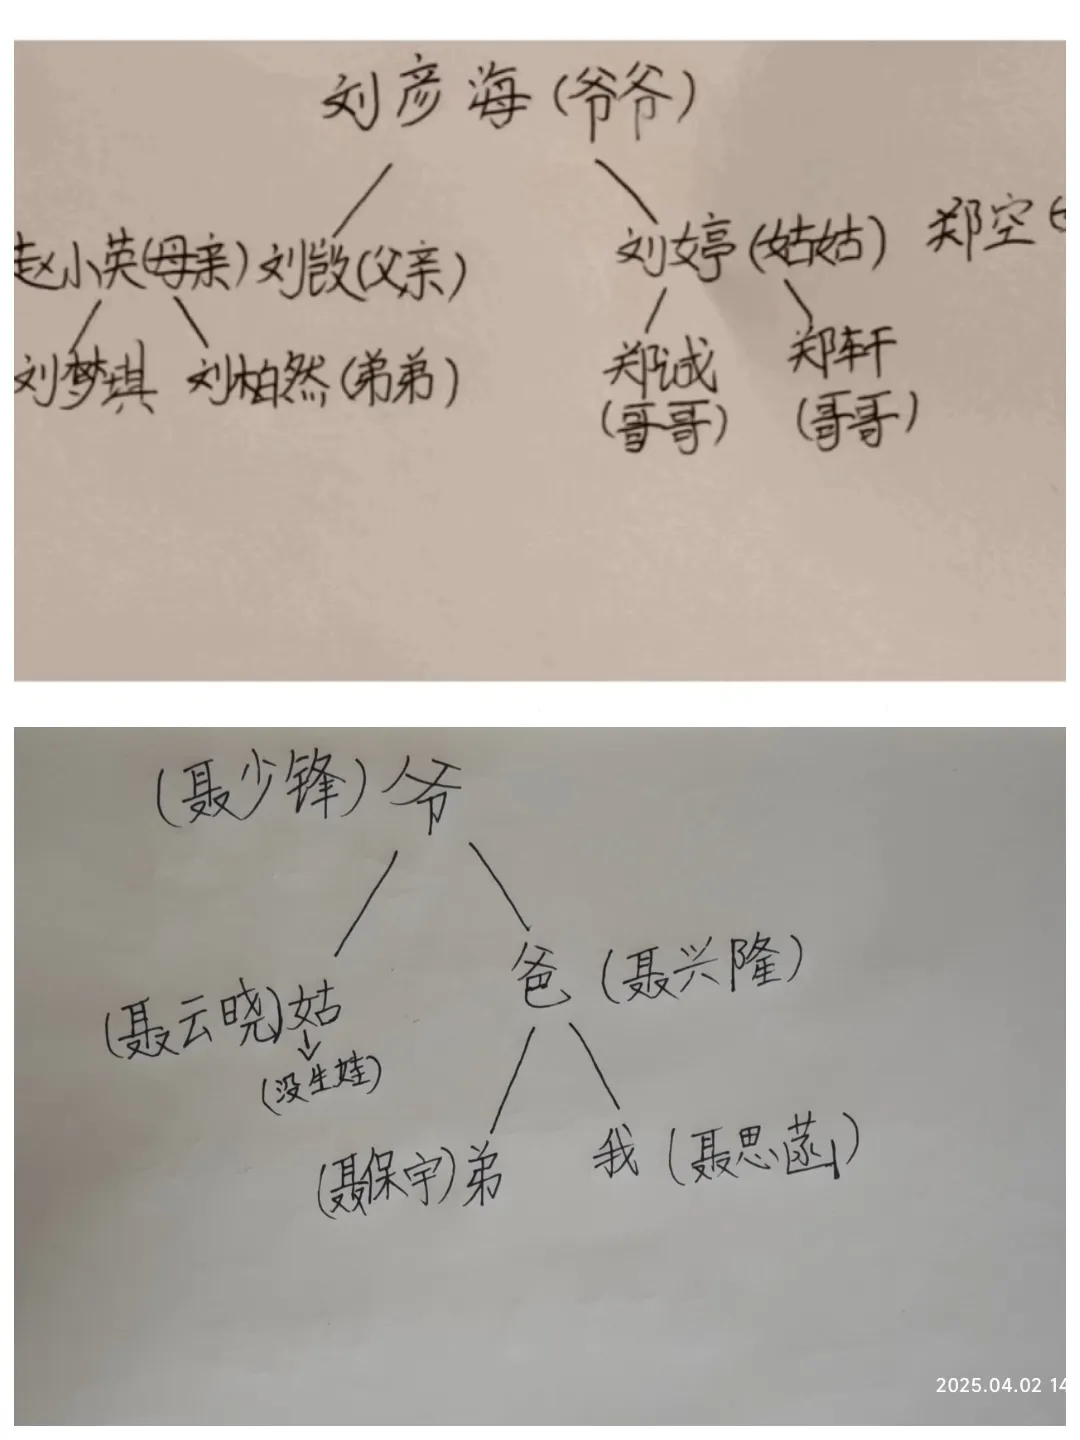 刘彦海(爷爷)
赵小英(母亲) 刘毅(父亲) 刘婷(姑姑) 郑空(
刘梦琪 刘柏然(弟弟) 郑诚 郑轩
(哥哥) (哥哥)
(聂少锋)爷
爸(聂兴隆)
(聂云晓)姑
(没生娃)
(聂保宇)弟 我(聂思菡)
2025.04.02 14